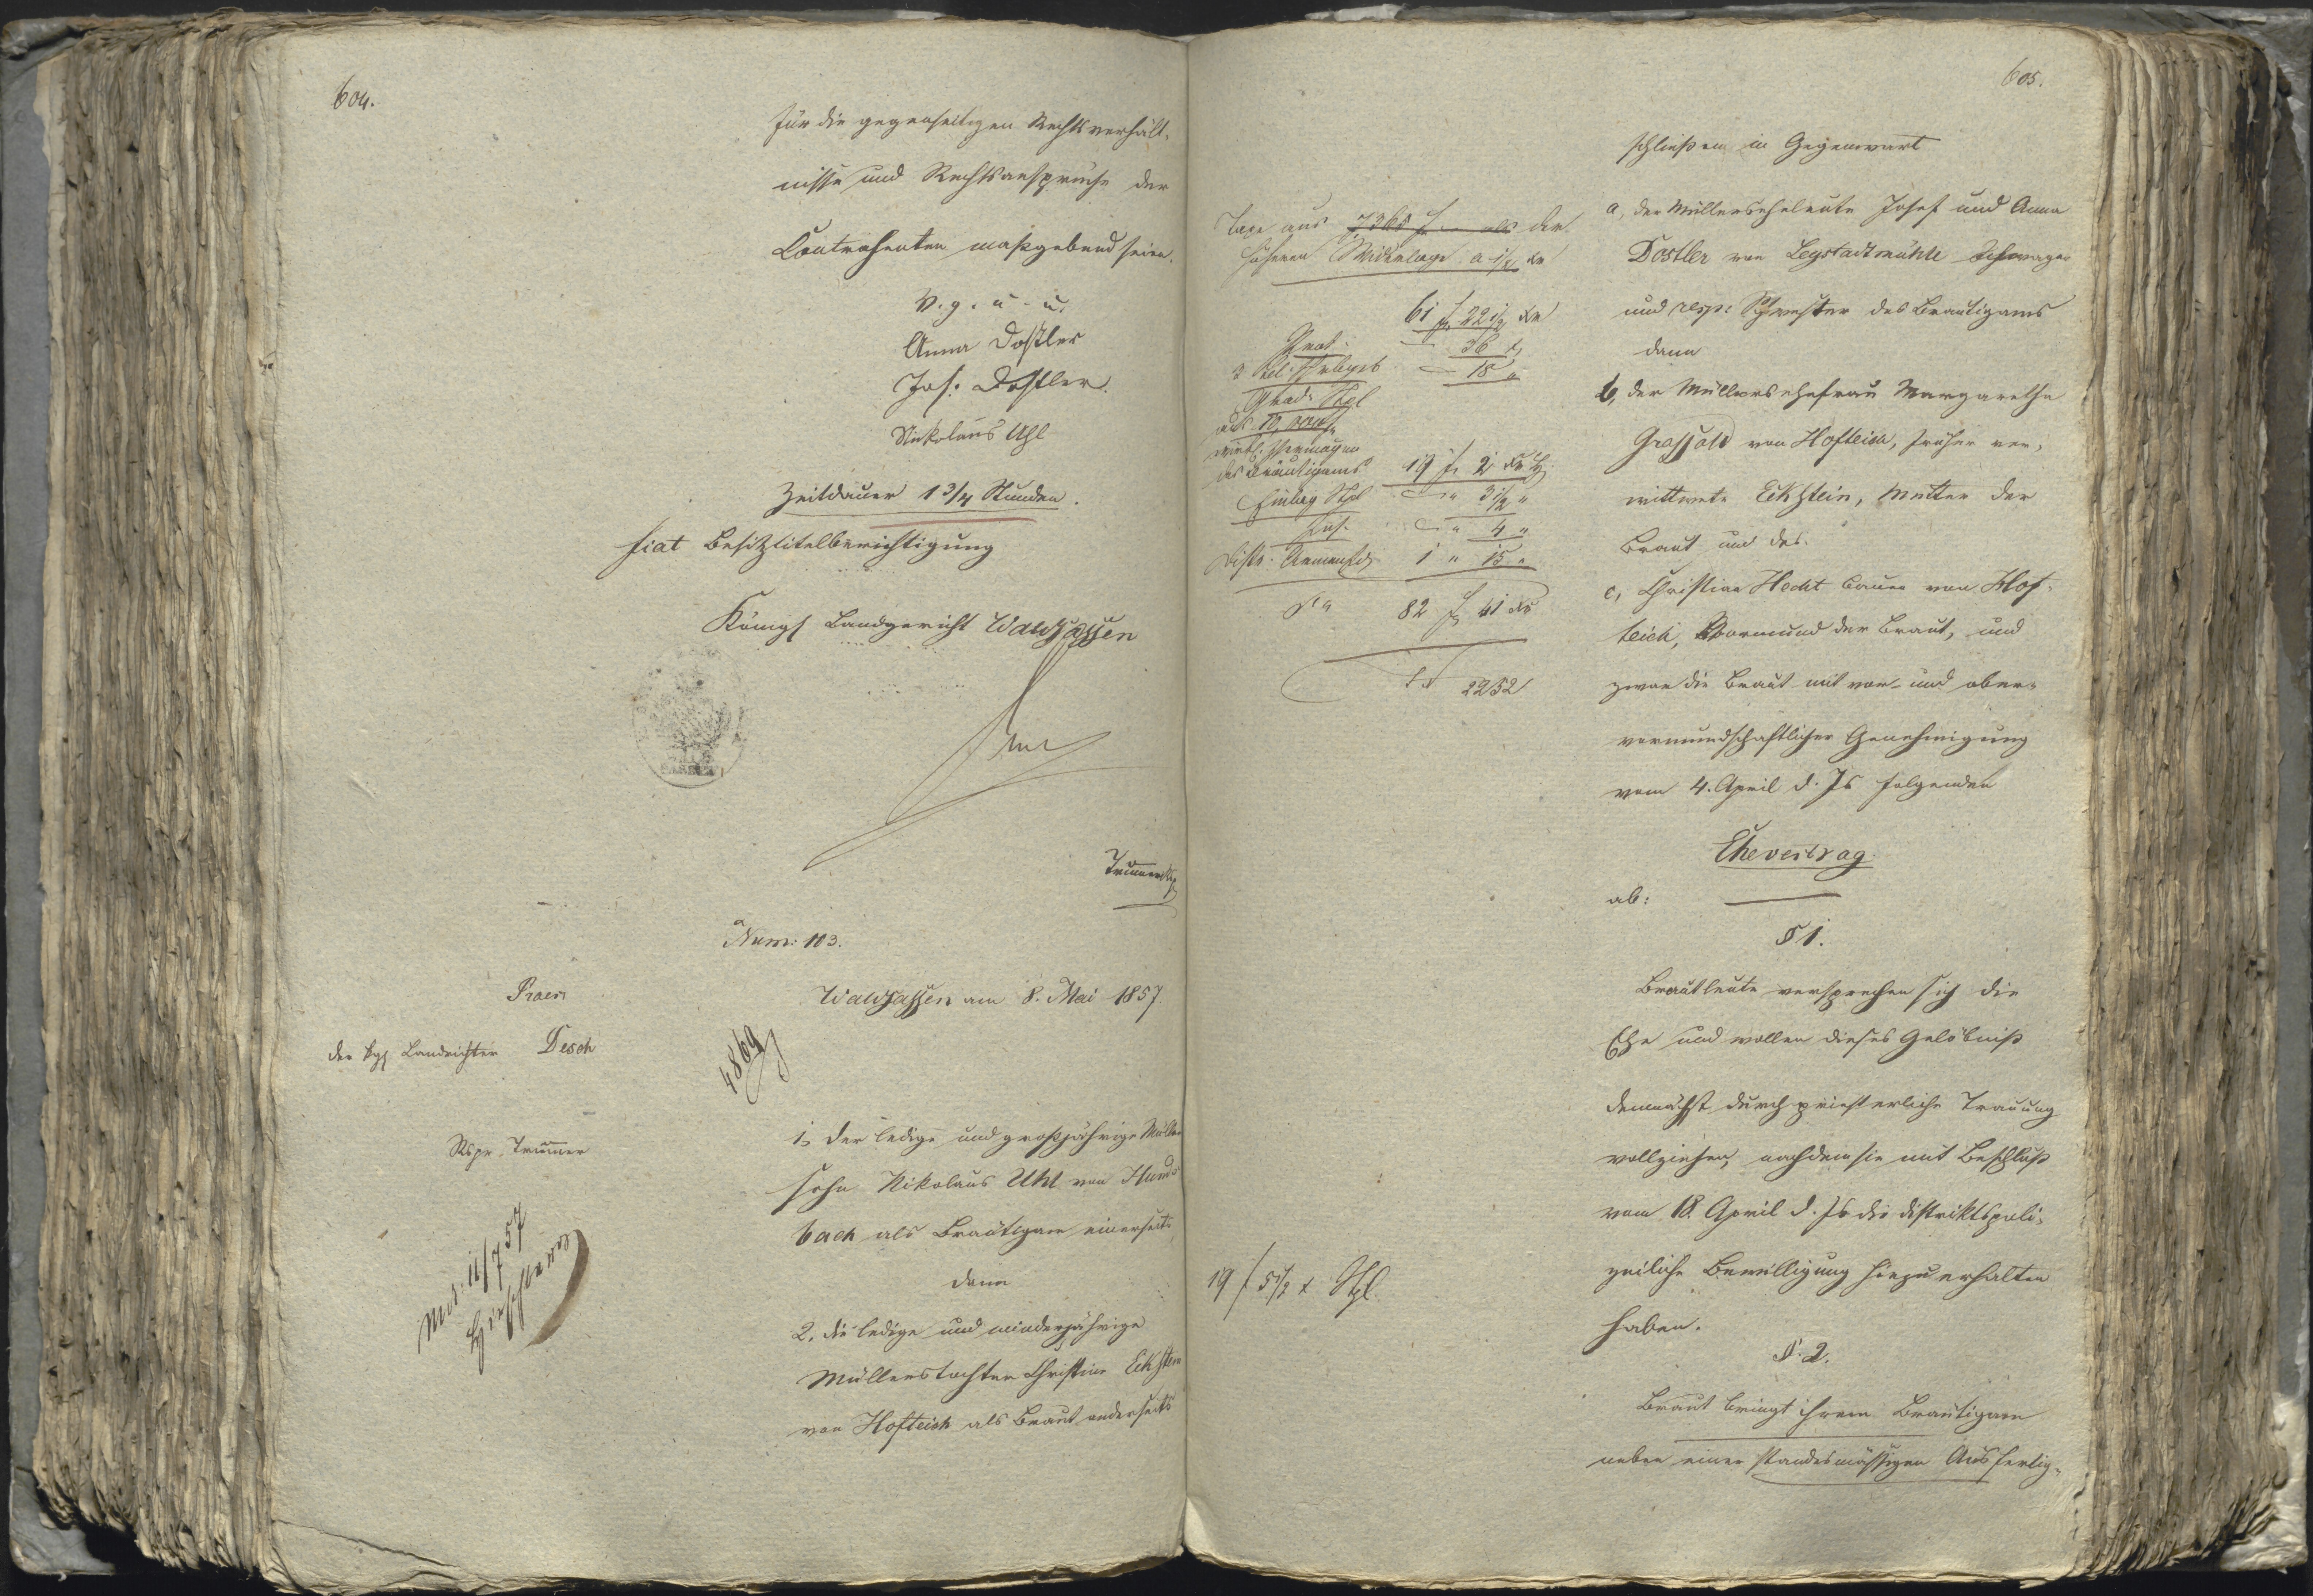 604.
für die gegenseitigen Rechtsverhält-
nisse und Rechtsansprüche der
Contrahenten maßgebend seien.
V. g. u. u.
Anna Dostler
Jos: Dostler.
Nickolaus Uhl
Zeitdauer 1 3/4 Stunden.
fiat Besitztitelberichtigung
Königl Landgericht Waldsassen
Num: 103.
Praes
Waldsassen am 8. Mai 1857
der kgl Landrichter Desch
4869
Rspr. Trummer
1, der ledige und großjährige Müllers
sohn Nikolaus Uhl von Hunds
bach als Bräutigam einerseits
dann
2, die ledige und minderjährige
Müllerstochter Christine Eckstein
von Hofteich als Braut anderseits
605.
Taxe aus 7365 f als der
höheren Widerlage a 1/2 kr
61 f 22 1/2 kr
Prot. 36 "
18 "
Grad. Stpl
aus 10,000 f
Vermögen
des Bräutigams 19 f 2 kr
Einleg Stpl " 3 1/2 "
" 4 "
1 " 15 "
Sa 82 f 41 kr
2252
19 f 5 1/2 x Stpl.
schließen in Gegenwart
a, der Müllerseheleute Josef und Anna
Dostler von Legstadtmühle Schwager
und resp: Schwester des Bräutigams
dann
b, der Müllersehefrau Margaretha
Grassold von Hofteich, früher ver-
wittwete Eckstein, Mutter der
Braut und des
c, Christian Hecht Bauer von Hof-
teich, Vormund der Braut, und
zwar die Braut mit vor- und ober-
vormundschaftlicher Genehmigung
vom 4. April d. Js folgenden
Ehevertrag
ab:
§ 1.
Brautleute versprechen sich die
Ehe und wollen dieses Gelöbniß
demnächst durch priesterliche Trauung
vollziehen, nachdem sie mit Beschluß
vom 18. April d. Js die distriktspoli-
zeiliche Bewilligung hiezu erhalten
haben.
§. 2.
Braut bringt ihrem Bräutigam
neben einer standesmäßigen Ausfertig-